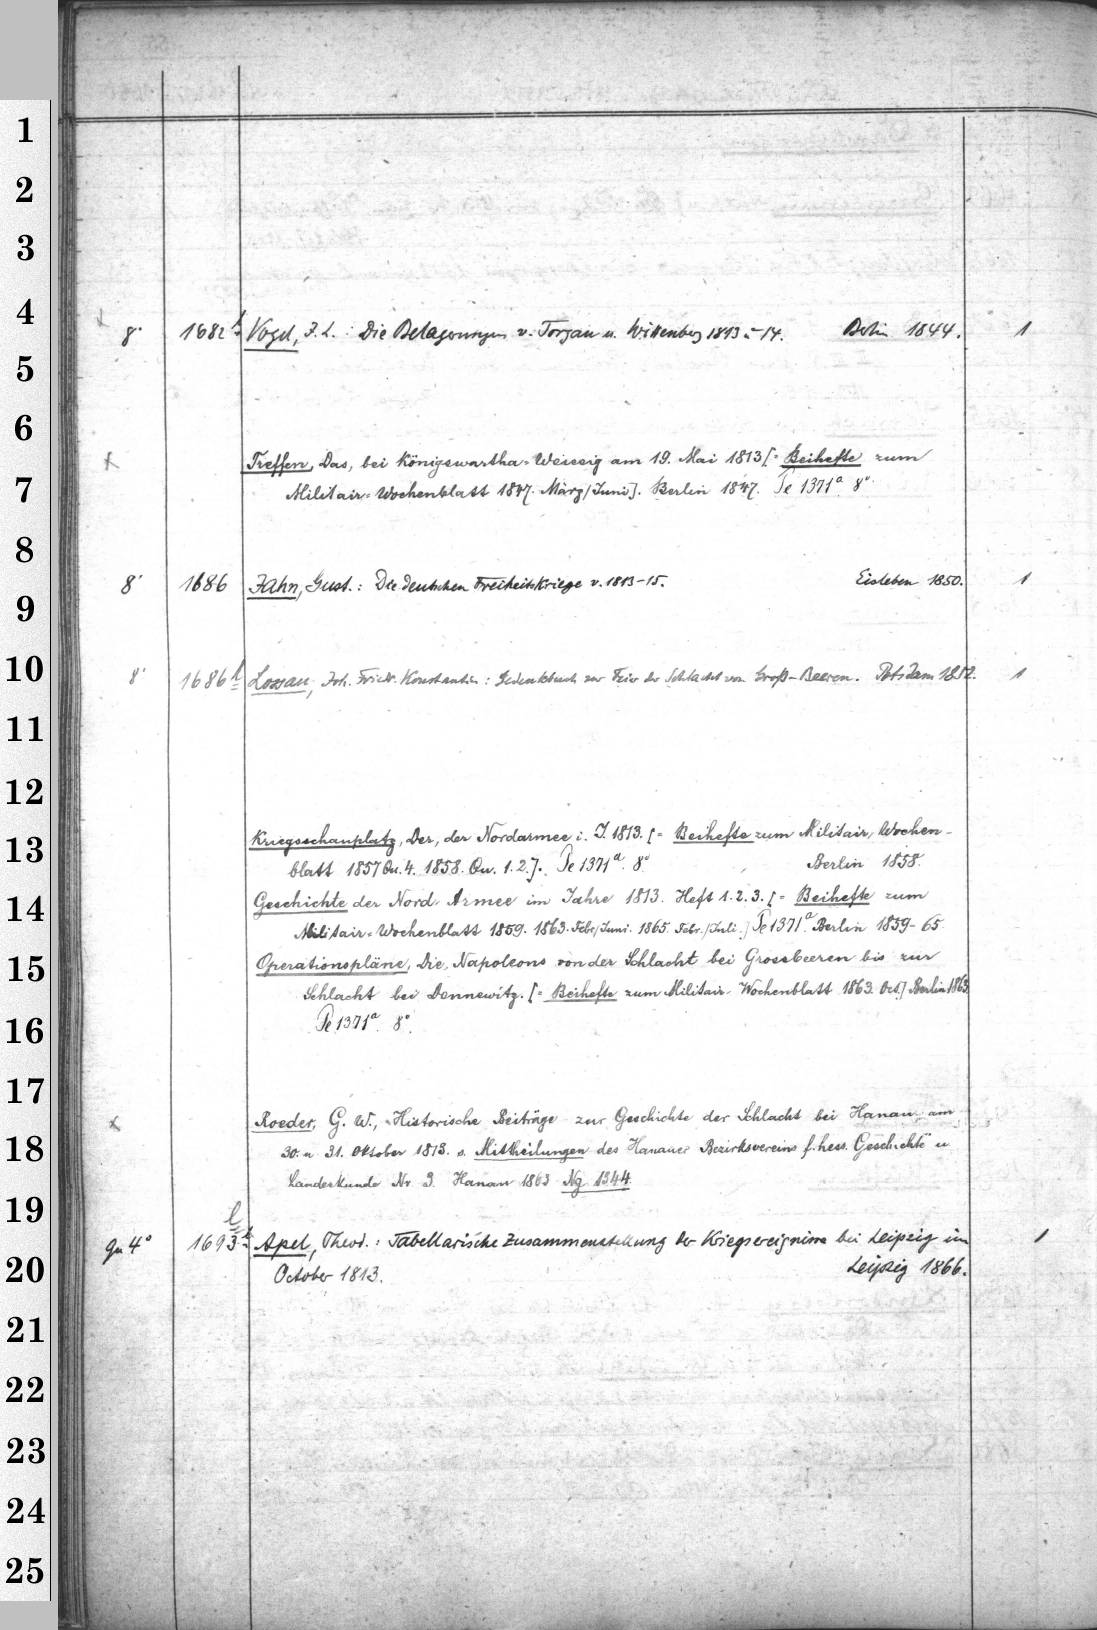 1
2
3
4
8° 1682 b Vogel, J. L.: Die Belagerungen v. Torgau u. Wittenberg 1813 u. 14. Berlin 1844. 1
5
6
x Treffen, Das, bei Königswartha-Weissig am 19. Mai 1813 [= Beihefte zum
7
Militair-Wochenblatt 1847. März/Juni]. Berlin 1847. Pe 1371ª 8°.
8
8° 1686 Jahn, Gust.: Die deutschen Freiheitskriege v. 1813-15. Eisleben 1850. 1
9
10
8° 1686 b Lossau, Joh. Friedr. Konstantin: Gedenkbuch zur Feier der Schlacht von Groß-Beeren. Potsdam 1852. 1
11
12
13
Kriegsschauplatz, Der, der Nordarmee i. J. 1813. [= Beihefte zum Militair, Wochen-
blatt 1857 Qu. 4. 1858. Qu. 1. 2.]. Pe 1371ª. 8° Berlin 1858.
14
Geschichte der Nord-Armee im Jahre 1813. Heft 1. 2. 3. [= Beihefte zum
Militair-Wochenblatt 1859. 1863. Febr/Juni. 1865. Febr./Juli.] Pe 1371ª. Berlin 1859-65.
15
Operationspläne, Die, Napoleons von der Schlacht bei Grossbeeren bis zur
Schlacht bei Dennewitz. [= Beihefte zum Militair-Wochenblatt 1863. Oct.] Berlin 1863.
16
Pe 1371ª. 8°.
17
x Roeder, G. W., Historische Beiträge zur Geschichte der Schlacht bei Hanau am
18
30. u 31. Oktober 1813. s. Mittheilungen des Hanauer Bezirksvereins f. hess. Geschichte u
Landeskunde Nr 3. Hanau 1863 Ng 1344.
19
qu 4° 1693 b Apel, Theod.: Tabellarische Zusammenstellung der Kriegsereignisse bei Leipzig im 1
20
October 1813. Leipzig 1866.
21
22
23
24
25